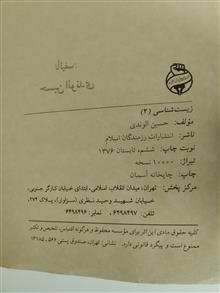 تألیف:
حسین الوندی
زیست‌شناسی (۲)
مؤلف: حسین الوندی
ناشر: انتشارات رزمندگان اسلام
نوبت چاپ: ششم، تابستان ۱۳۷۶
تیراژ: ۱۰۰۰۰ نسخه
چاپ: چاپخانه آسمان
مرکز پخش: تهران، میدان انقلاب اسلامی، ابتدای خیابان کارگر جنوبی،
خیابان شهید وحید نظری (سزاوار)، پلاک ۲۷۴،
تلفن: ۶۴۹۸۲۹۷، نمابر: ۶۴۹۸۲۹۶
کلیه حقوق مادی این اثر برای مؤسسه محفوظ و هرگونه اقتباس، تلخیص و تکثیر
ممنوع است و پیگرد قانونی دارد. نشانی: تهران، صندوق پستی ۵۶۶ـ۱۳۱۸۵